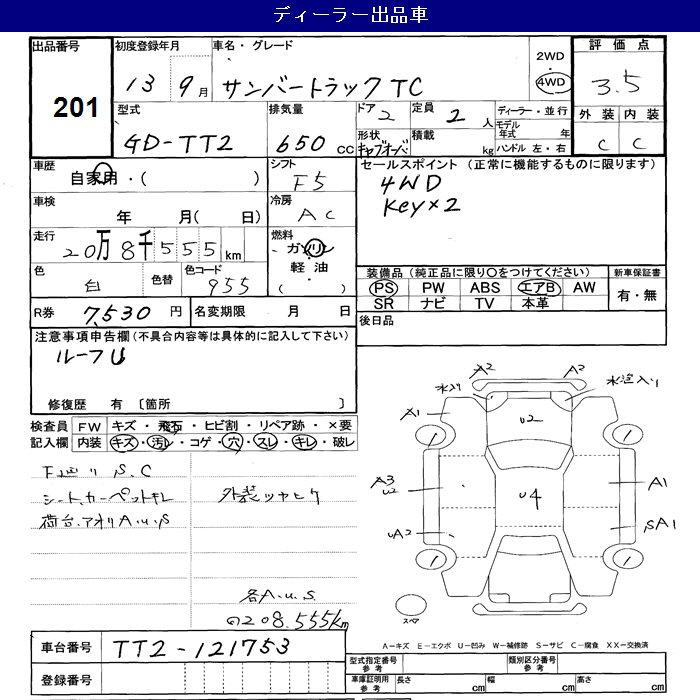 ディーラー出品車
出品番号 201
初度登録年月 13 9月
車名・グレード サンバートラック TC
2WD ・ 4WD
評価点 3.5
外装 C 内装 C
型式 GD-TT2
排気量 650 CC
ドア 2 定員 2 人
形状 キャブオーバ 積載 kg
ディーラー・並行
モデル年式 年
ハンドル 左・右
車歴 自家用・( )
シフト F5
車検 年 月( 日)
冷房 AC
走行 20万8千555 km
燃料 ガソリン・軽油・( )
色 白 色替 色コード 955
R券 7,530 円 名変期限 月 日
セールスポイント (正常に機能するものに限ります)
4WD
Key×2
装備品 (純正品に限り○をつけてください)
PS PW ABS エアB AW
SR ナビ TV 本革
新車保証書 有・無
後日品
注意事項申告欄 (不具合内容等は具体的に記入して下さい)
ルーフU
修復歴 有 〔箇所 〕
検査員記入欄 FW キズ・飛石・ヒビ割・リペア跡・×要
内装 キズ・汚レ・コゲ・穴・スレ・キレ・破レ
下廻りS.C
シート、カーペットキレ
荷台、アオリA.U.S
外装ツヤヒケ
各A.U.S
208.555km
A2 A2
水入り
A1 U2
A3 U2 U4 A1
UA2 SA1
スペア
A-キズ E-エクボ U-凹み W-補修跡 S-サビ C-腐食 XX-交換済
車台番号 TT2-121753
登録番号
型式指定番号 参考 類別区分番号 参考
車庫証明用 参考 長さ cm 幅 cm 高さ cm